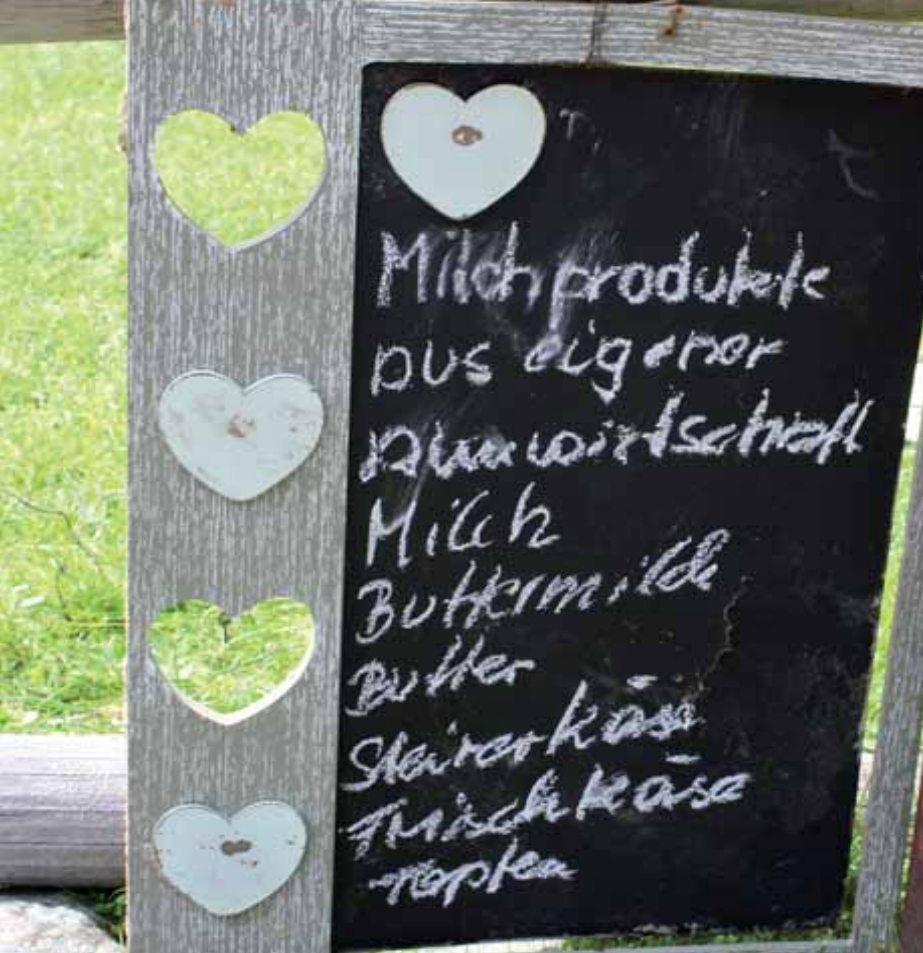 Milchprodukte
aus eigener
Almwirtschaft
Milch
Buttermilch
Butter
Steirerkäse
Frischkäse
Topfen